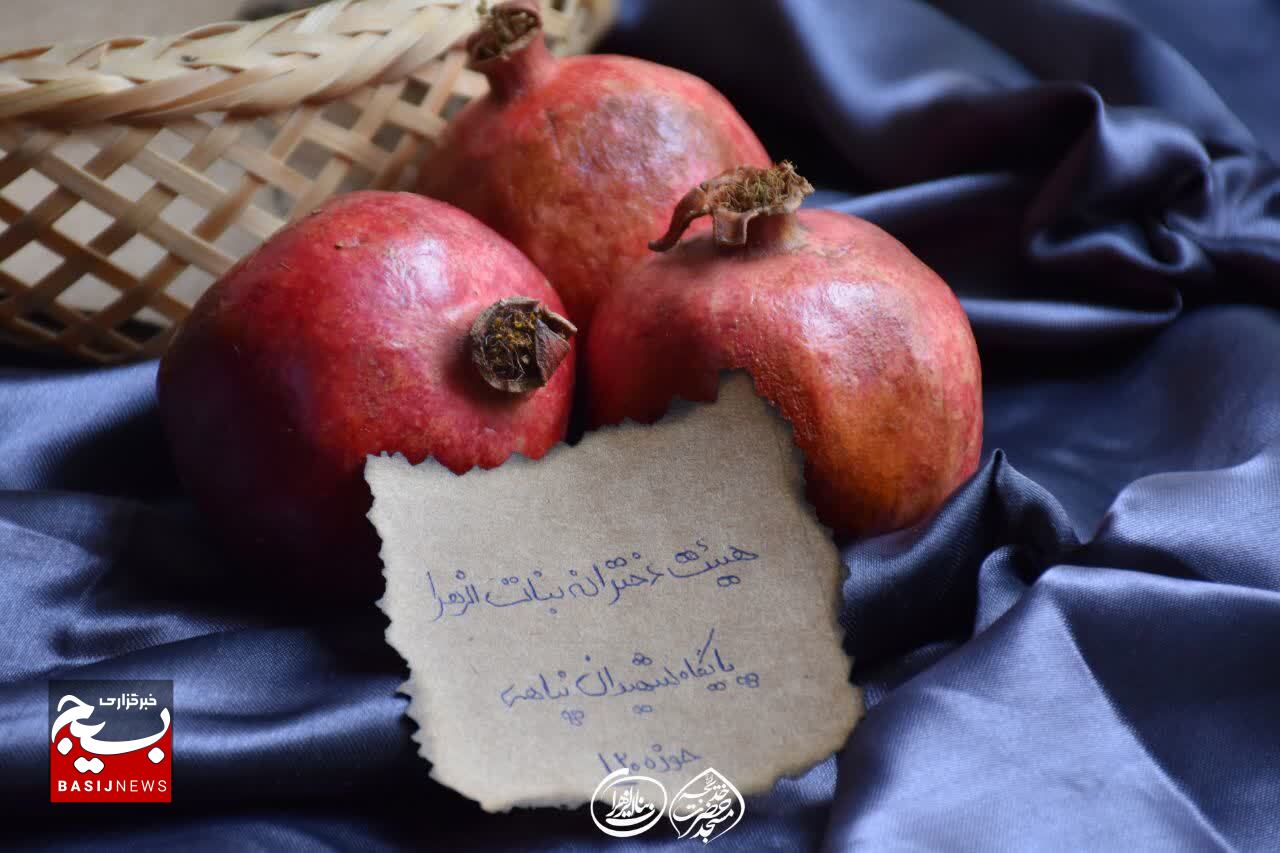 هیئت دخترانه بنات الزهرا
پایگاه شهیدان پناهی
حوزه ۱۲۰
خبرگزاری
بسیج
BASIJNEWS
بنات الزهرا
مسجد حضرت خدیجه